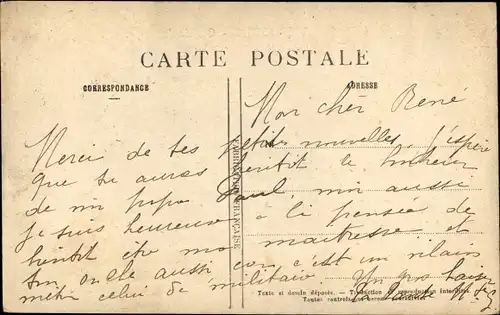 CARTE POSTALE
CORRESPONDANCE
ADRESSE
Mon cher René
Merci de tes petites nouvelles. J'espère
que tu auras bientôt le bonheur
de mon papa Paul, moi aussi
je suis heureuse à la pensée de
bientôt être ma maitresse et
ton oncle aussi car c'est un vilain
métier celui de militaire Un gros baiser
FABRICATION FRANÇAISE
Texte et dessin déposés. - Traduction et reproduction interdites.
Toutes contrefaçons seront poursuivies.